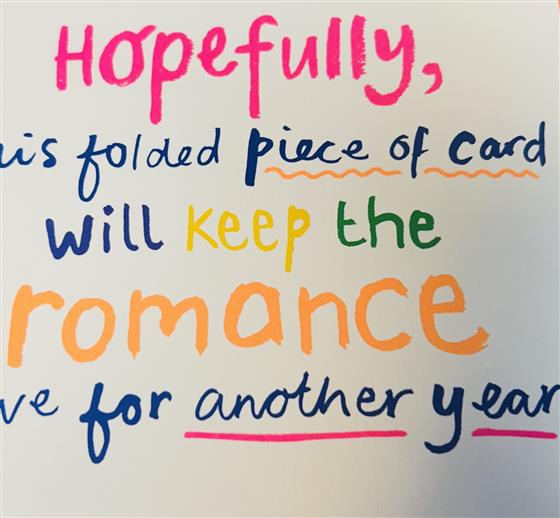 Hopefully,
his folded piece of card
will keep the
romance
ve for another year